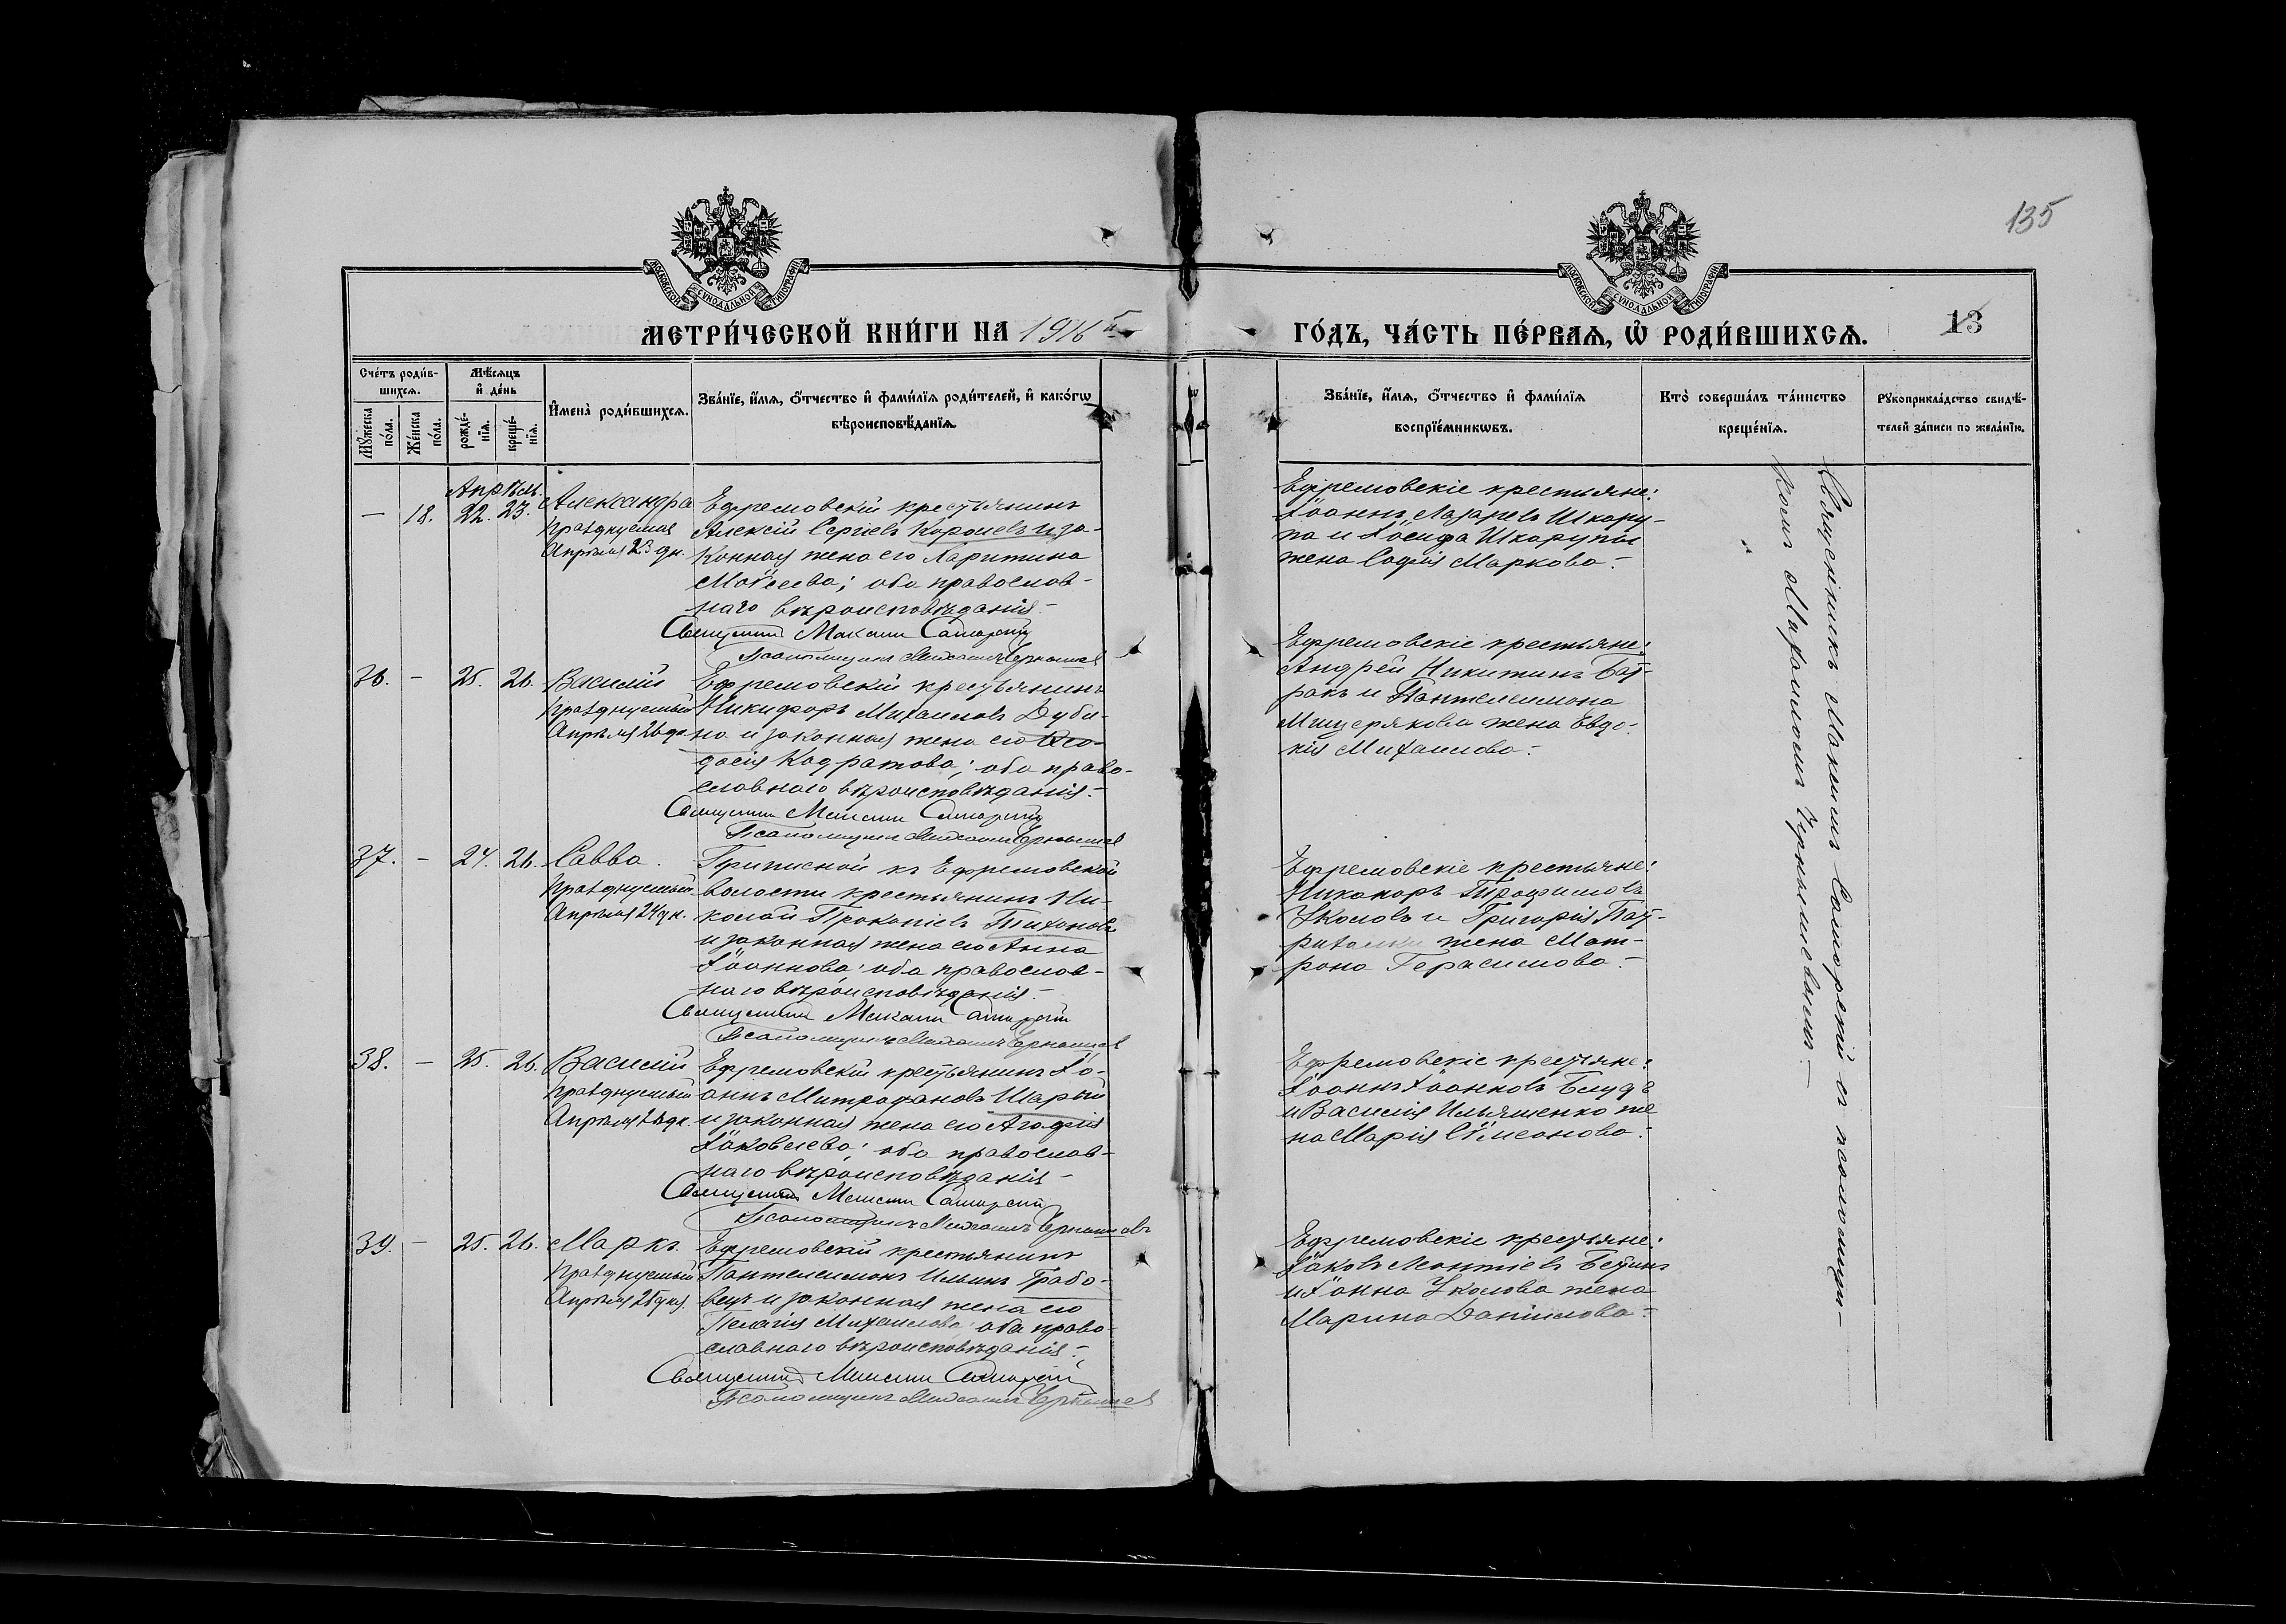 135
МОСКОВСКОЙ СУНОДАЛЬНОЙ ТИПОГРАФІИ
МОСКОВСКОЙ СУНОДАЛЬНОЙ ТИПОГРАФІИ
МЕТРИ́ЧЕСКОЙ КНИ́ГИ НА 1916 й
ГО́ДЪ, ЧА́СТЬ ПЕ́РВАѦ, Ѡ РОДИ́ВШИХСѦ.
13
Сче́тъ роди́в-
шихсѧ.
Мꙋжеска по́ла.
Же́нска по́ла.
Мѣ́сѧцъ
и де́нь
рожде́-
нїѧ.
креще́-
нїѧ.
Имена̀ роди́вшихсѧ.
Зва́нїе, и́мѧ, о́тчество и фами́лїѧ роди́телей, и како́гѡ
вѣроисповѣ́данїѧ.
Зва́нїе, и́мѧ, о́тчество и фами́лїѧ
воспрїе́мникѡвъ.
Кто̀ соверша́лъ та́инство
креще́нїѧ.
Рꙋкоприкла́дство свидѣ́-
телей за́писи по жела́нїю.
Апрѣль.
— 18. 22. 23. Александра
Празднуемая
Апрѣля 23 дн.
Ефремовскій крестьянинъ
Алексій Сергіевъ Королевъ и за-
конная жена его Харитина
Моѵсеева; оба православ-
наго вѣроисповѣданія.
Священникъ Максимъ Самарскій
Псаломщикъ Михаилъ Чернышевъ
Ефремовскіе крестьяне:
Іоаннъ Лазаревъ Шкару-
па и Іосифа Шкарупы
жена Софія Маркова.
36. — 25. 26. Василій
Празднуемый
Апрѣля 26 дн.
Ефремовскій крестьянинъ
Никифоръ Михаиловъ Дуби-
на и законная жена его Ѳео-
досія Кодратова; оба право-
славнаго вѣроисповѣданія.
Священникъ Максимъ Самарскій
Псаломщикъ Михаилъ Чернышевъ
Ефремовскіе крестьяне:
Андрей Никитинъ Бат-
ракъ и Пантелеимона
Мищерякова жена Евдо-
кія Михаилова.
37. — 24. 26. Савва.
Празднуемый
Апрѣля 24 дн.
Приписной къ Ефремовской
волости крестьянинъ Ни-
колай Прокопіевъ Тихоновъ
и законная жена его Анна
Іоаннова; оба православ-
наго вѣроисповѣданія.
Священникъ Максимъ Самарскій
Псаломщикъ Михаилъ Чернышевъ
Ефремовскіе крестьяне:
Никаноръ Трофимовъ
Уколовъ и Григорія
жена Мат-
рона Герасимова.
38. — 25. 26. Василій
Празднуемый
Апрѣля 26 дн.
Ефремовскій крестьянинъ Іо-
аннъ Митрофановъ Шарый
и законная жена его Агафія
Іаковлева; оба православ-
наго вѣроисповѣданія
Священникъ Максимъ Самарскій
Псаломщикъ Михаилъ Чернышовъ
Ефремовскіе крестьяне:
Іоаннъ Іоанновъ Блудъ
и Василія Ильяшенко же
на Марія Сѵмеонова.
39. — 25. 26. Маркъ.
Празднуемый
Апрѣля 25 дня.
Ефремовскій крестьянинъ
Пантелеимонъ Ильинъ Грабо-
вецъ и законная жена его
Пелагія Михаилова; оба право-
славнаго вѣроисповѣданія.
Священникъ Максимъ Самарскій
Псаломщикъ Михаилъ Чернышевъ
Ефремовскіе крестьяне:
Іаковъ Леонтіевъ
и Іоанна Уколова жена
Марина Даніилова.
Священникъ Максимъ Самарскій съ псаломщи-
комъ Михаиломъ Чернышевымъ.